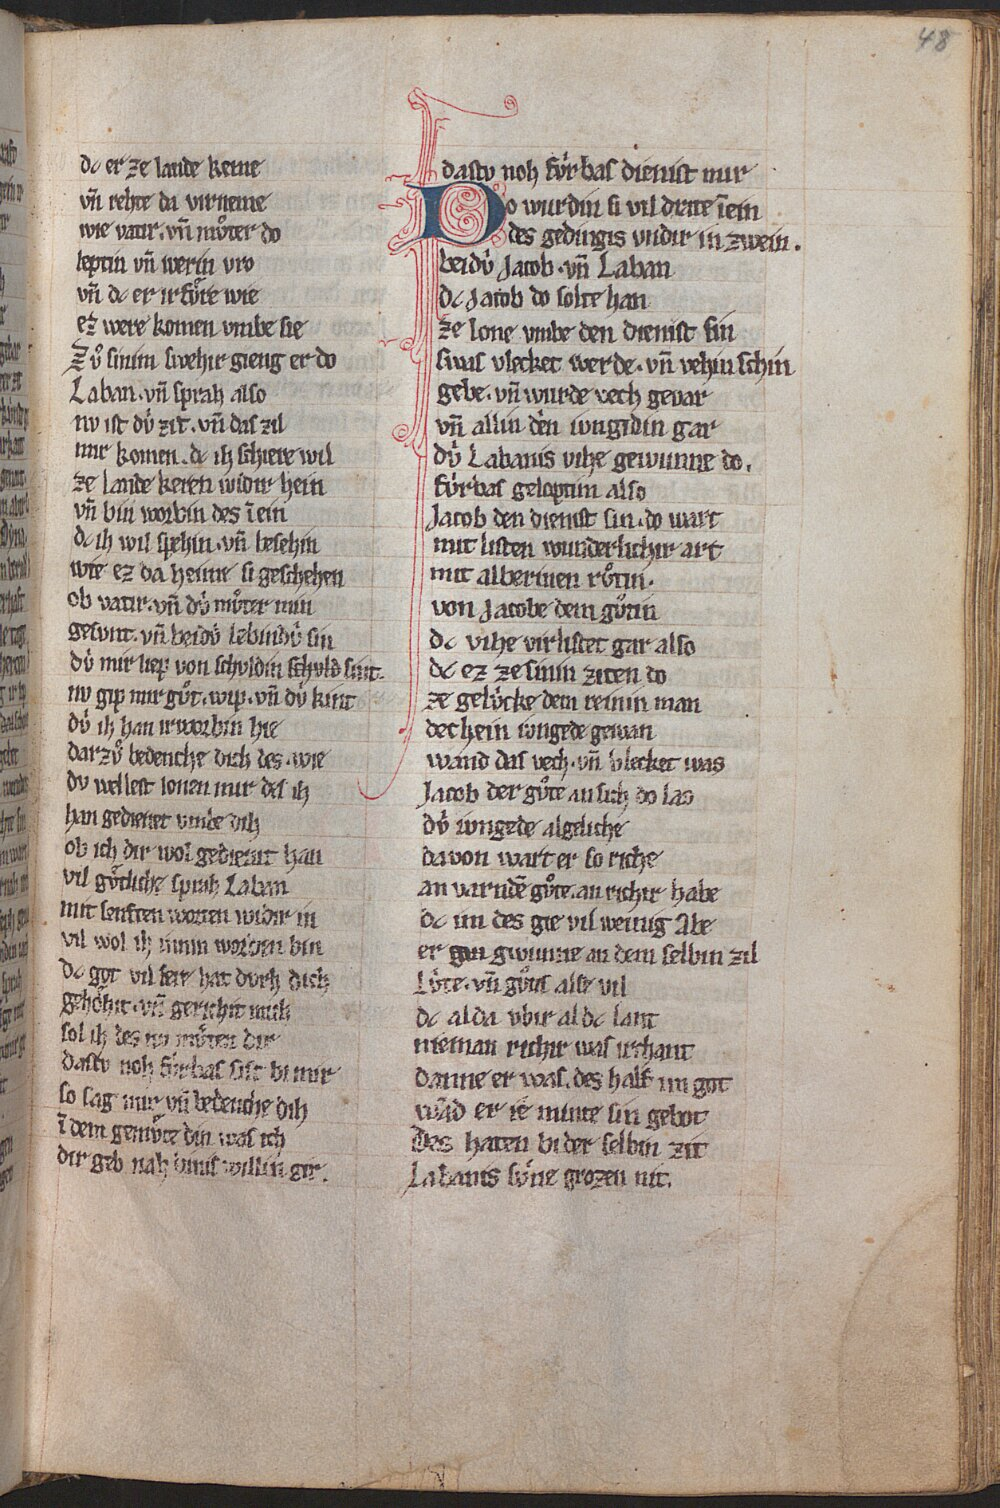 48
dc er ze lande keme
vn̄ rehte da virneme
wie vatir. vn̄ můter do
leptin vn̄ werin vro
vn̄ dc er irfůre wie
ez were komen vmbe sie
Zů sinim swehir gieng er do
Laban. vn̄ sprah also
nv ist dv́ zit. vn̄ das zil
mir komen. dc ih schiere wil
ze lande keren widir hein
vn̄ bin worbin des īein
dc ih wil spehin. vn̄ besehin
wie ez da heime si geschehen
ob vatir. vn̄ dv́ můter min
gesunt. vn̄ beidv́ lebindv́ sin
dv́ mir liep von schvldin schvld sint.
nv gip mir gůt. wip. vn̄ dv́ kint
dv́ ih han irworbin hie
darzů bedenche dich des. wie
dv wellest lonen mir des ih
han gedienet vmbe dih
ob ich dir wol gedienit han
vil gůtliche sprah Laban
mit senften worten widir in
vil wol ih innin worden bin
dc got vil sere hat dvrh dich
gehöhit. vn̄ gerichit mich
sol ih des nv můten dir
dastv noh fúrbas sist bi mir
so sag mir vn̄ bedenche dih
ī dem gemůte din was ich
dir geb nah dinis willin gir.
dastv noh fúrbas dienist mir
Do wurdin si vil drate īein
des gedingis vndir in zwein.
beidv́ Jacob. vn̄ Laban
dc Jacob do solte han
ze lone vmbe den dienist sin
swas vlecket werde. vn̄ vehin schin
gebe. vn̄ wurde vech gevar
vn̄ allin den iungidin gar
dv́ Labanis vihe gewunne do.
fúrbas geloptin also
Jacob den dienist sin. do wart
mit listen wunderlichir art
mit alberinen růtin.
von Jacobe dem gůtin
dc vihe virlistet gar also
dc ez ze sinin ziten do
ze gelv́cke dem reinin man
dechein iungede gewan
wand das vech. vn̄ vlecket was
Jacob der gůte an sich do las
dv́ iungede algeliche
davon wart er so riche
an varndē gůte. an richir habe
dc im des gie vil wenig Abe
er gwunne an dem selbin zil
Lv́te. vn̄ gůtis alse vil
dc alda vbir al dc lant
nieman richir was irchant
danne er was. des half im got
wād er ie minte sin gebot
Des haten bi der selbin zit
Labanis sv́ne grozen nit.